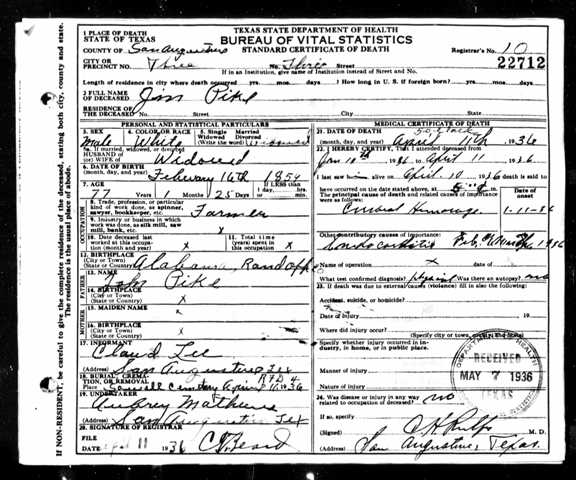 TEXAS STATE DEPARTMENT OF HEALTH
BUREAU OF VITAL STATISTICS
STANDARD CERTIFICATE OF DEATH
1 PLACE OF DEATH
STATE OF TEXAS
COUNTY OF San Augustine
Registrar's No. 10
CITY OR
PRECINCT NO. Three No. Three Street
22712
If in an Institution, give name of Institution instead of Street and No.
Length of residence in city where death occurred yrs. mos. days. ? How long in U. S. if foreign born? yrs. mos. days
2 FULL NAME
OF DECEASED Jim Pike
RESIDENCE OF
THE DECEASED No. Street City State
PERSONAL AND STATISTICAL PARTICULARS
3. SEX 4. COLOR OR RACE 5. Single Married
Widowed Divorced
(Write the word)
Male White
5a. If married, widowed, or divorced
HUSBAND OF
(or) WIFE OF Widowed
6. DATE OF BIRTH
February 16th 1859
7. AGE If LESS than
1 day,
77 Years 1 Months 25 Days hrs.
or min.
8. Trade, profession, or particular
kind of work done, as spinner,
sawyer, bookkeeper, etc. Farmer
9. Industry or business in which
work was done, as silk mill, saw
mill, bank, etc. x
10. Date deceased last
worked at this occupa-
tion (month and year) x
11. Total time
(years) spent in
this occupation x
12. BIRTHPLACE
(City or Town)
(State or Country) Alabama,
13. NAME
Pike
14. BIRTHPLACE
(City or Town)
(State or Country) x
15. MAIDEN NAME x
16. BIRTHPLACE
(City or Town)
(State or Country) x
17 INFORMANT
Claud Lee
(Address) San Augustine Tex
18. BURIAL, CREMA-
TION, OR REMOVAL RFD 4
19. UNDERTAKER
Aubrey
(Address) San Augustine Tex
20. SIGNATURE OF REGISTRAR
FILE
DATE 11 1936 Beard
MEDICAL CERTIFICATE OF DEATH
21. DATE OF DEATH
April 11th 1936
22. I HEREBY CERTIFY, That I attended deceased from
Jan 10th 1936 April 11 1936
I last saw him alive on April 10 1936 death is said to
have occurred on the date stated above, at m.
The principal cause of death and related causes of
importance were as follows:
Date of
onset
1-11-36
Other contributory causes of importance were:
1936
Name of operation x date of
What test confirmed diagnosis? Was there an autopsy? no
23. If death was due to external causes (violence) fill in also the following:
Accident, suicide, or homicide?
Date of injury 19
Where did injury occur?
(Specify city or town, county and State)
Specify whether injury occurred in
industry, in home, or in public place
Manner of injury
Nature of injury
24. Was disease or injury in any way
related to occupation of deceased? no
If so, specify
(Signed) M. D.
(Address) San Augustine, Texas
DEPARTMENT OF HEALTH
RECEIVED
MAY 7 1936
TEXAS
OCCUPATION
FATHER
MOTHER
IF NON-RESIDENT, Be careful to give the complete residence of the deceased, stating both city, county and state.
The residence is the usual place of abode.